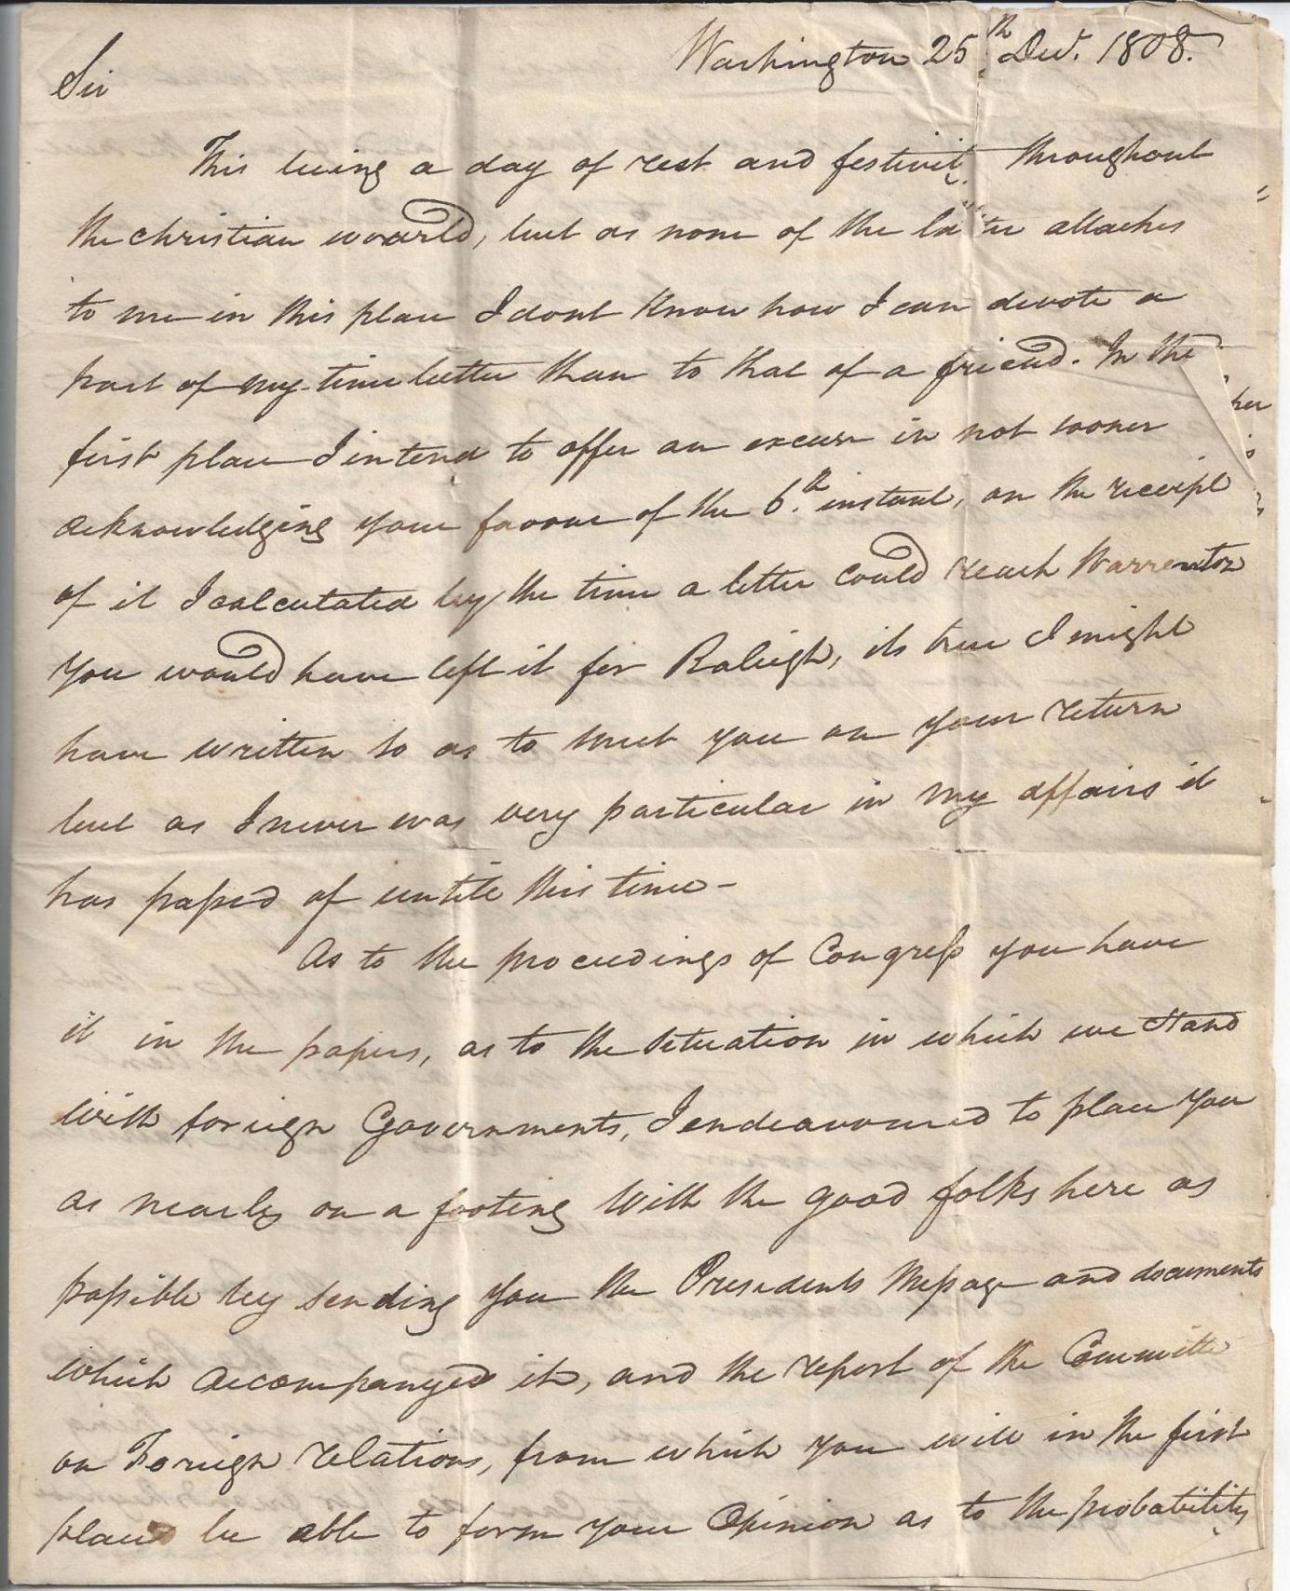 Washington 25th Decr. 1808.
Sir
This being a day of rest and festivity throughout
the christian woarld, but as none of the latter attaches
to me in this place I dont know how I can devote a
part of my time better than to that of a friend. In the
first place I intend to offer an excuse in not sooner
acknowledging your favour of the 6th. instant, on the receipt
of it I calculated by the time a letter could reach Warrenton
you would have left it for Raleigh, its true I might
have written so as to meet you on your return
but as I never was very particular in my affairs it
has passed of untile this time -
As to the proceedings of Congress you have
it in the papers, as to the situation in which we stand
with foreign Governments, I endeavoured to place you
as nearly on a footing with the good folks here as
possible by sending you the Presidents message and documents
which accompanyed it, and the report of the Committe
on Foreign relations, from which you will in the first
place be able to form your Opinion as to the probability